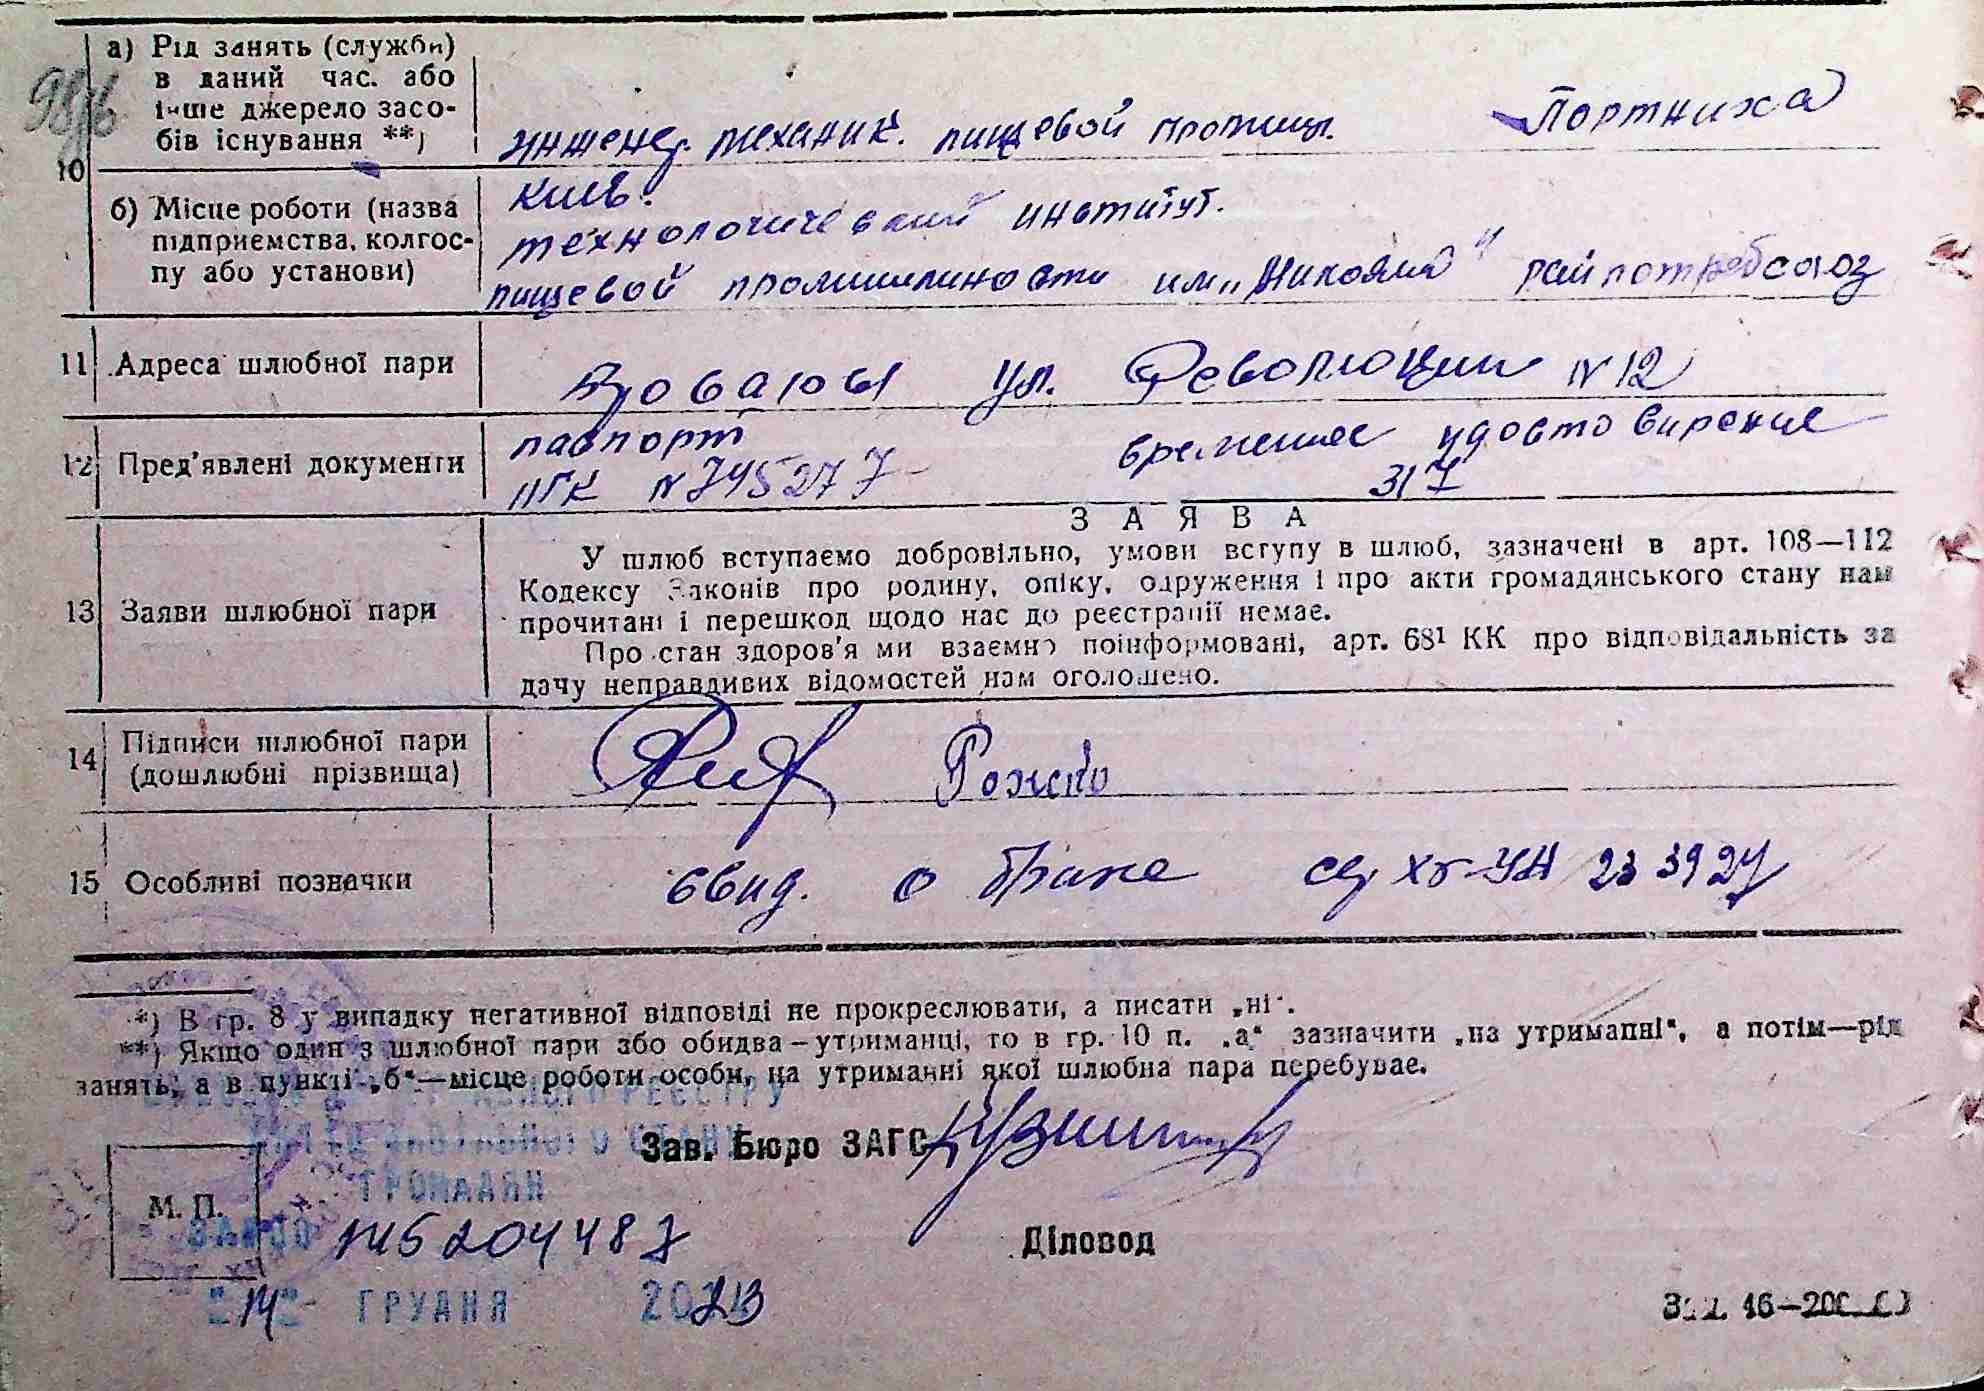 а) Рід занять (служби)
в даний час. або
інше джерело засо-
бів існування **)
инженер. механик. пищевой промиш. Портниха
10
б) Місце роботи (назва
підприємства, колгос-
пу або установи)
Киів.
технологический институт.
пищевой промишлиности им. „Микояна" райпотребсоюз
11 Адреса шлюбної пари
ул. Революции N 12
12 Пред'явлені документи
паспорт временное удостовирение
N 745277 317
ЗАЯВА
13 Заяви шлюбної пари
У шлюб вступаємо добровільно, умови вступу в шлюб, зазначені в арт. 108—112
Кодексу Законів про родину, опіку, одруження і про акти громадянського стану нам
прочитані і перешкод щодо нас до реєстрації немає.
Про стан здоров'я ми взаємно поінформовані, арт. 68¹ КК про відповідальність за
дачу неправдивих відомостей нам оголошено.
14 Підписи шлюбної пари
(дошлюбні прізвища)
Рожко
15 Особливі позначки
свид. о браке 233927
*) В гр. 8 у випадку негативної відповіді не прокреслювати, а писати „ні".
**) Якщо один з шлюбної пари або обидва—утриманці, то в гр. 10 п. „а" зазначити „на утриманні", а потім—рід
занять, а в пункті „б"—місце роботи особи, на утриманні якої шлюбна пара перебуває.
РЕЄСТРУ
ГРОМАДЯН
Зав. Бюро ЗАГС
М. П.
5204487
Діловод
14 ГРУДНЯ 2023